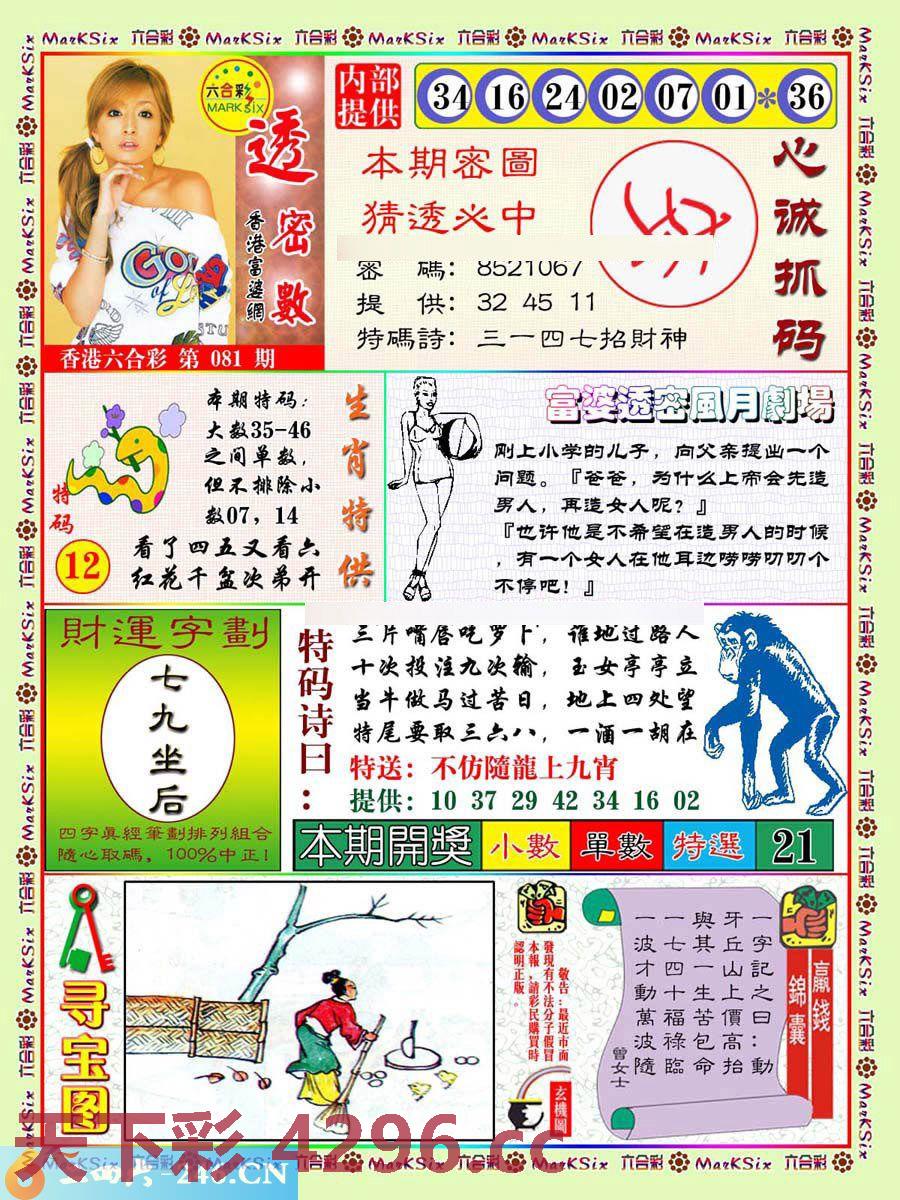 MarKSix 六合彩 MarKSix 六合彩 MarKSix 六合彩 MarKSix 六合彩 MarKSix 六合彩
六合彩
MARK SIX
透密數
香港富婆網
香港六合彩 第 081 期
内部
提供
34 16 24 02 07 01 * 36
本期密圖
猜透必中
密 碼: 8521067
提 供: 32 45 11
特碼詩: 三一四七招財神
心诚抓码
特码
12
本期特码:
大数35-46
之间单数,
但不排除小
数07, 14
看了四五又看六
红花千盆次弟开
生肖特供
富婆透密風月劇場
刚上小学的儿子, 向父亲提出一个
问题。『爸爸, 为什么上帝会先造
男人, 再造女人呢? 』
『也许他是不希望在造男人的时候
, 有一个女人在他耳边唠唠叨叨个
不停吧! 』
財運字劃
七九坐后
四字眞經筆劃排列組合
隨心取碼, 100%中正!
特码诗曰:
三片嘴唇吃萝卜, 谁地过路人
十次投注九次输, 玉女亭亭立
当牛做马过苦日, 地上四处望
特尾要取三六八, 一酒一胡在
特送: 不仿隨龍上九宵
提供: 10 37 29 42 34 16 02
本期開獎 小數 單數 特選 21
寻宝图
敬告:最近市面
發現有不法分子假冒
本報,請彩民購買時
認明正版。
玄機圖
一字記之曰:動
牙丘山上價高抬
與其一生苦包命
一七四十福祿臨
一波才動萬波隨
曾女士
贏錢
錦囊
天下彩 4296.cc
MarKSix 六合彩 MarKSix 六合彩 MarKSix 六合彩 MarKSix 六合彩 MarKSix 六合彩